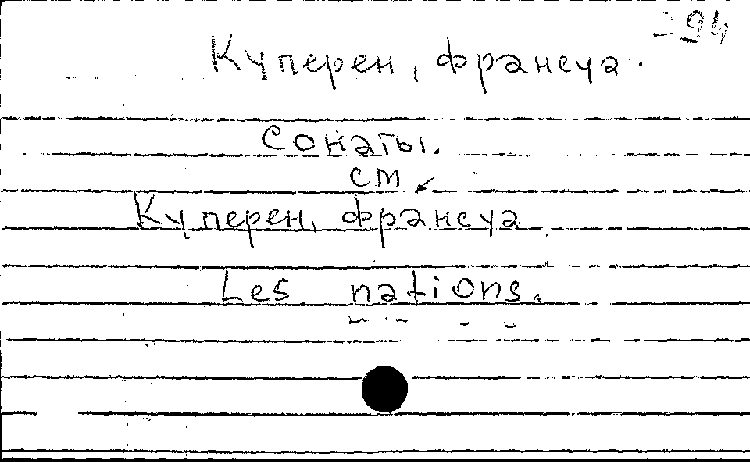 Куперен, Франсуа.
Сонаты.
см
Куперен, Франсуа
Les nations.